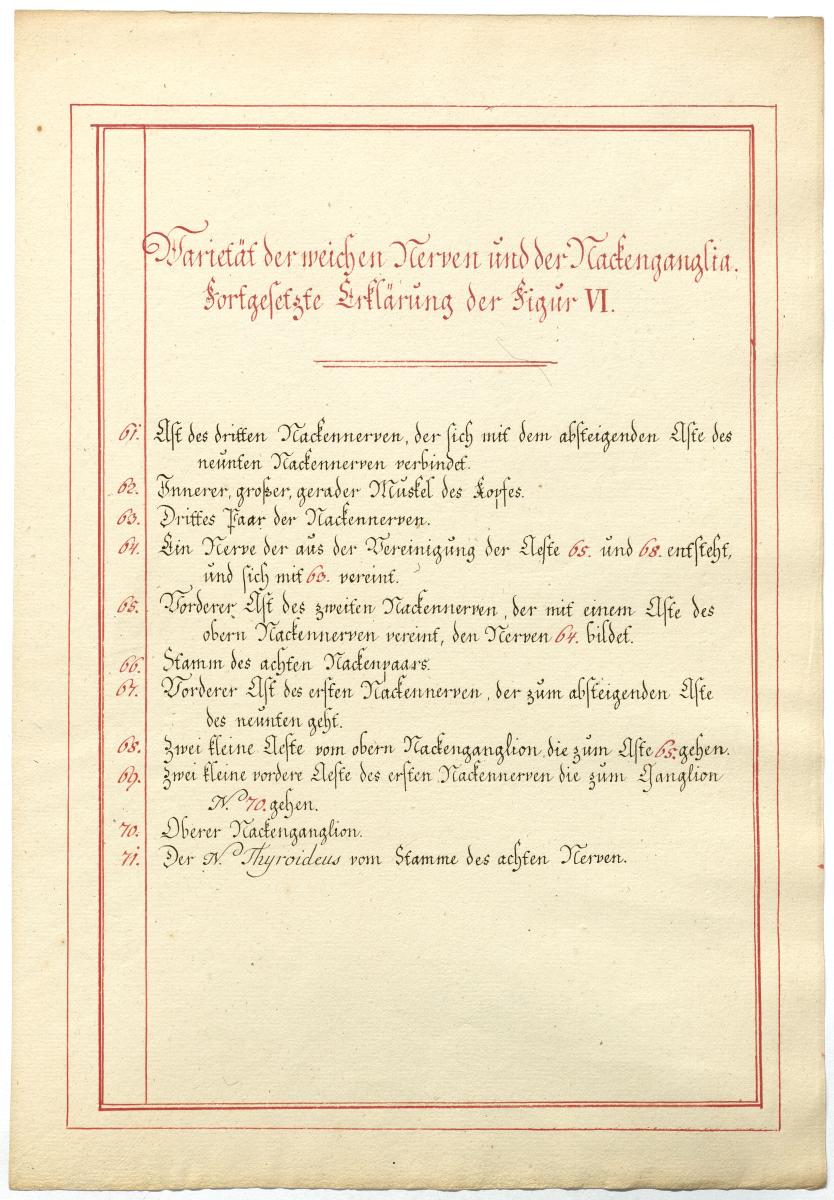 Varietät der weichen Nerven und der Nackenganglia.
Fortgesetzte Erklärung der Figur VI.
61. Ast des dritten Nackennerven, der sich mit dem absteigenden Aste des
neunten Nackennerven verbindet.
62. Innerer, großer, gerader Muskel des Kopfes.
63. Drittes Paar der Nackennerven.
64. Ein Nerve der aus der Vereinigung der Aeste 65. und 68. entsteht,
und sich mit 63. vereint.
65. Vorderer Ast des zweiten Nackennerven, der mit einem Aste des
obern Nackennerven vereint, den Nerven 64. bildet.
66. Stamm des achten Nackenpaars.
67. Vorderer Ast des ersten Nackennerven, der zum absteigenden Aste
des neunten geht.
68. Zwei kleine Aeste vom obern Nackenganglion, die zum Aste 65. gehen.
69. Zwei kleine vordere Aeste des ersten Nackennerven die zum Ganglion
N.º 70. gehen.
70. Oberer Nackenganglion.
71. Der N.º Thyroideus vom Stamme des achten Nerven.